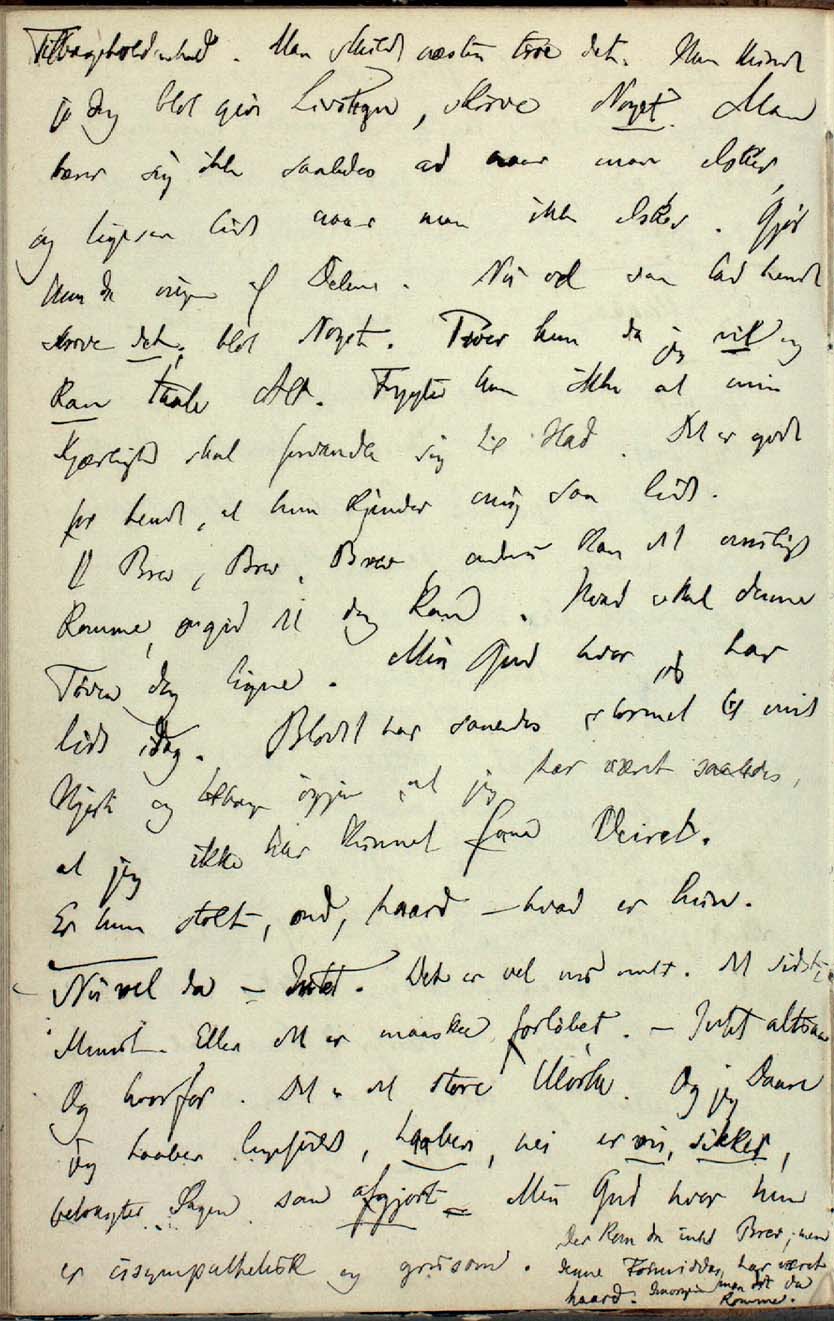 Tilbageholdenhed. Man skulde næsten troe det. Hun kunde
jo dog blot give Livstegn, skrive Noget. Man
bærer sig ikke saaledes ad naar man elsker,
og ligesaa lidt naar man ikke elsker. Gjør
hun da ingen af Delene. Nu vel saa lad hende
skrive det, blot Noget. Troer hun da jeg vil og
kan taale Alt. Frygter hun ikke at min
Kjærlighed skal forvandle sig til Had. Det er godt
for hende, at hun kjender mig saa lidt.
Brev, Brev, Brev, det umuligt
komme, det dog kan. Hvad skal denne
Tøven dog ligne. Min Gud hvor jeg har
lidt idag. Blodet har saaledes stormet til mit
Hjerte og tilbage igjen, at jeg har været saaledes,
at jeg ikke har kunnet faae Veiret.
Er hun stolt, ond, haard – hvad er hun.
Nu vel da – Intet. Det er vel nu det sidste
Minut. Eller det er maaskee forløbet. – Intet altsaa
Og hvorfor. Det er det store Mørke. Og jeg Daare
jeg haaber ligefuldt, haaber, nei er vis, sikker,
betragter Sagen som afgjort – Min Gud hvor hun
er usympathetisk og grusom. Der kom da intet Brev, men
denne Formiddag har været
haard. Imorgen maa det da
komme.